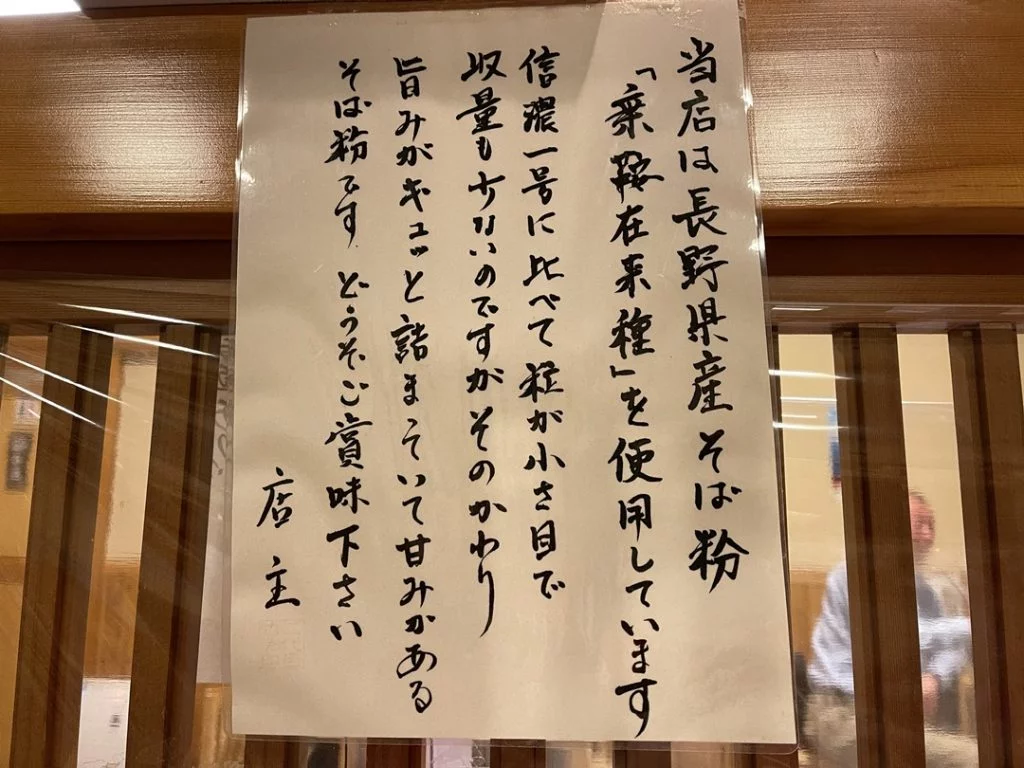 当店は長野県産そば粉
「乗鞍在来種」を使用しています
信濃一号に比べて粒が小さ目で
収量も少ないのですがそのかわり
旨みがキュッと詰まっていて甘みがある
そば粉です。どうぞご賞味下さい
店主